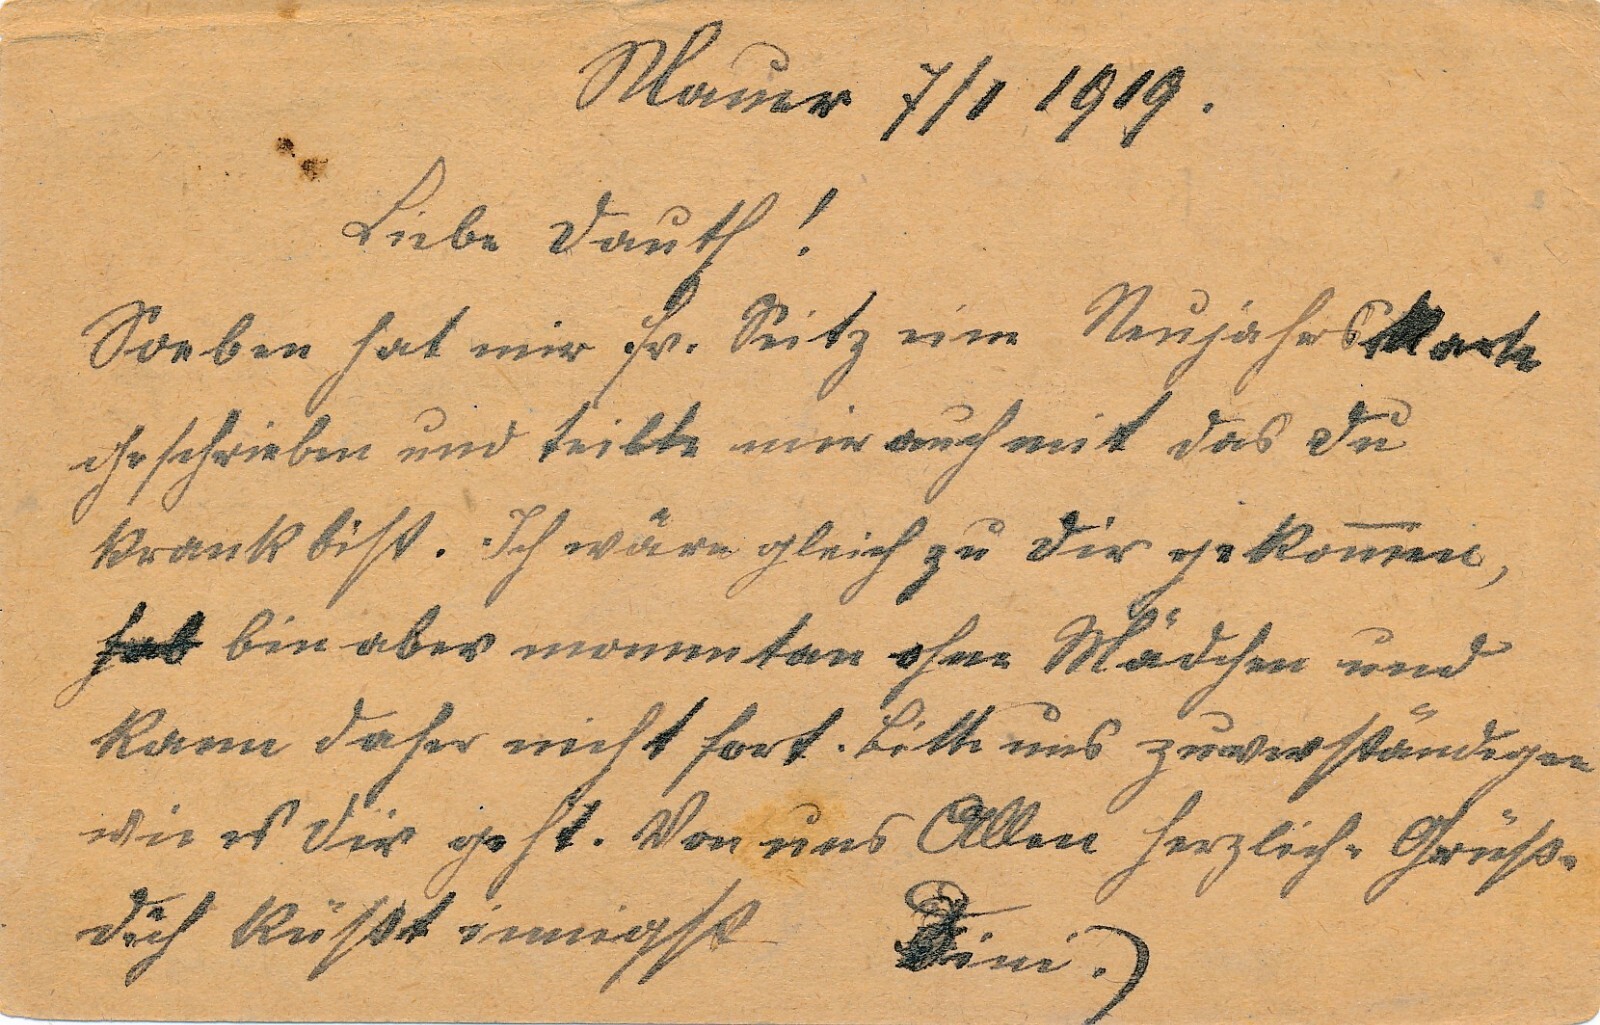 Mauer 7/1 1919.
Liebe Dauth!
Soeben hat mir Fr. Seitz eine Neujahrskarte
geschrieben und teilte mir auch mit das Du
krank bist. Ich wäre gleich zu Dir gekom̅en,
bin aber momentan ohne Mädchen und
kann daher nicht fort. Bitte uns zuverständigen
wie es Dir geht. Von uns Allen herzliche Grüße
dich küßt innigst Tini.